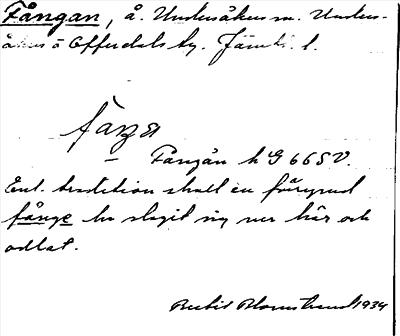 Fångan, å. Undersåkers sn. Unders-
åkers o Offerdals tg. Jämtl. l.
fåŋa
Fångån k G 665 V.
Enl. tradition skall en förrymd
fånge ha slagit sig ner här och
odlat.
Blomstrand 1934